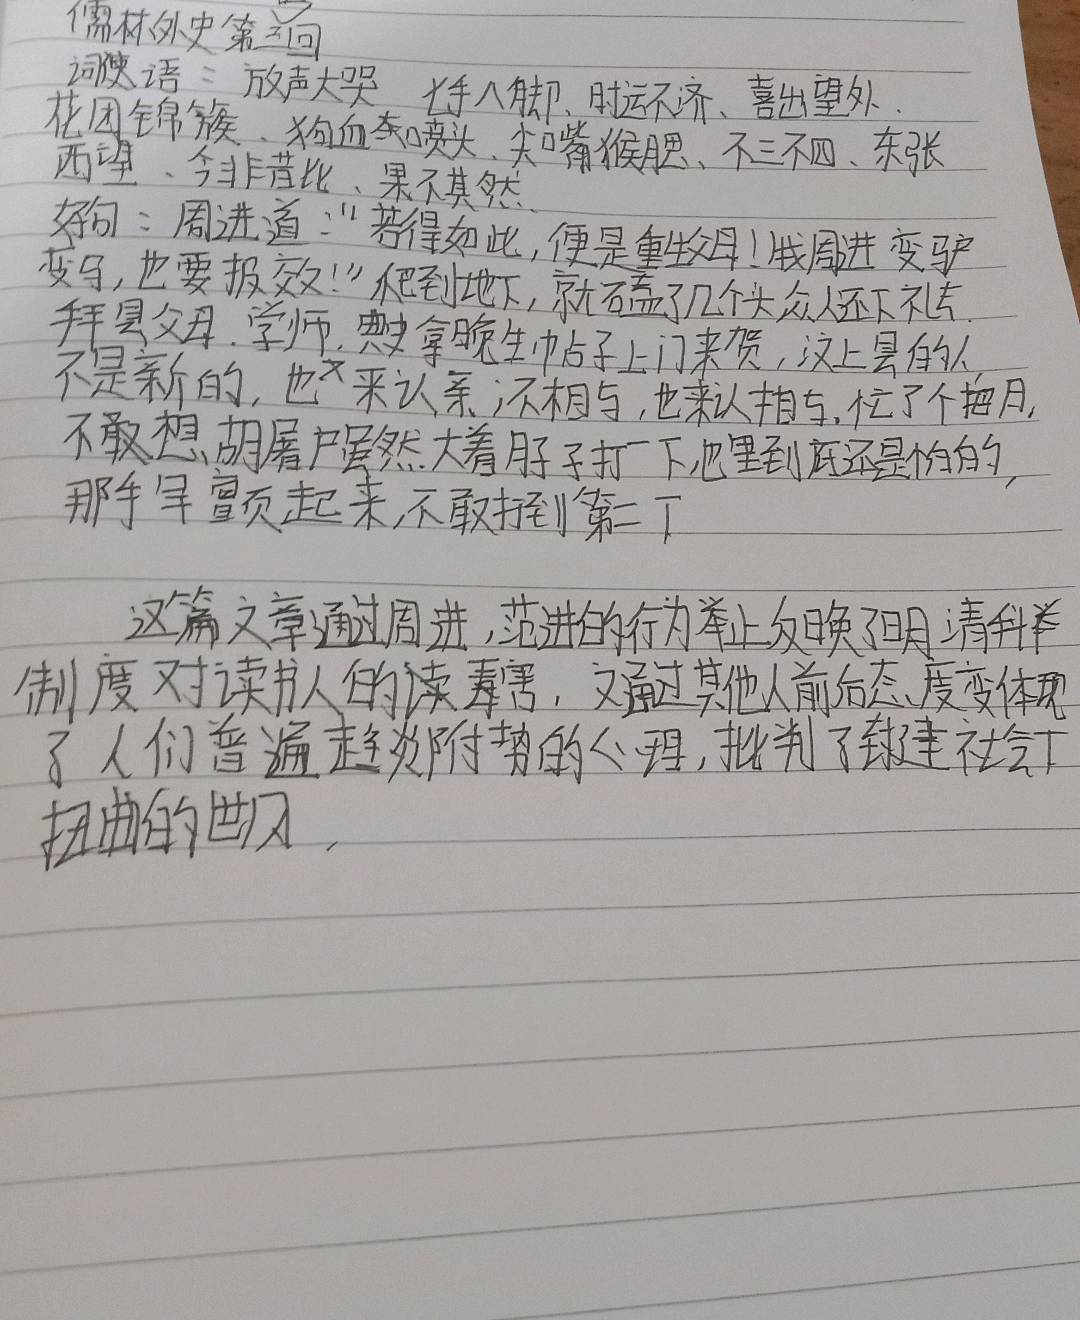 儒林外史第三回
词语：放声大哭 七手八脚、时运不济、喜出望外、
花团锦簇、狗血喷头、尖嘴猴腮、不三不四、东张
西望、今非昔比、果不其然、
好句：周进道："若得如此，便是重生父母！我周进变驴
变马，也要报效！"爬到地下，就磕了几个头众人还下礼去.
拜县父母、学师、典史拿晚生帖子上门来贺，汶上县的人
不是亲的，也来认亲，不相与，也来认相与，忙了个把月，
不敢想胡屠户虽然大着胆子打一下，心里到底还是怕的，
那手早颤起来，不敢打到第二下
这篇文章通过周进，范进的行为举止反映了明清科举
制度对读书人的读毒害，又通过其他人前后态度变体现
了人们普遍趋炎附势的心理，批判了封建社会下
扭曲的世风，